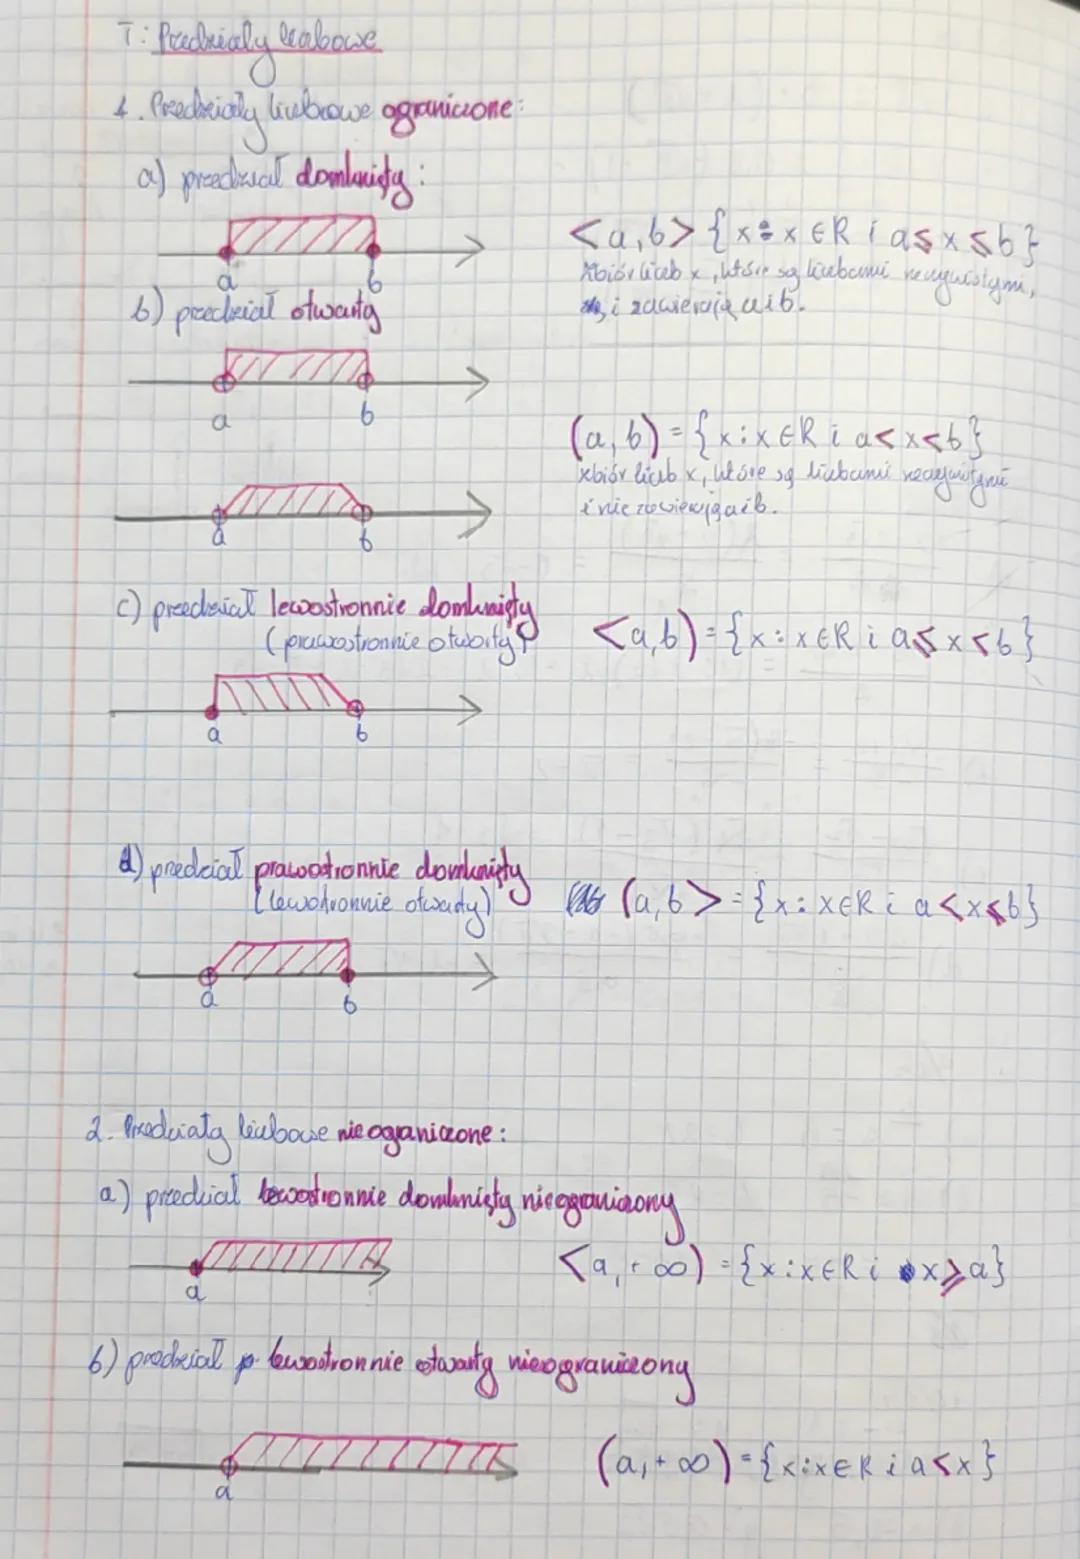 T: Przedziały liczbowe
1. Przedziały liczbowe ograniczone:
a) przedział domknięty:
a b
<a,b> {x: x ∈ R i a ≤ x ≤ b}
Zbiór liczb x, które są liczbami rzeczywistymi,
i zawierają a i b.
b) przedział otwarty
a b
(a,b) = {x: x ∈ R i a < x < b}
zbiór liczb x, które są liczbami rzeczywistymi
i nie zawierają a i b.
a b
c) przedział lewostronnie domknięty
(prawostronnie otwarty)
<a,b) = {x: x ∈ R i a ≤ x < b}
a b
d) przedział prawostronnie domknięty
(lewostronnie otwarty)
(a,b> = {x: x ∈ R i a < x ≤ b}
a b
2. Przedziały liczbowe nieograniczone:
a) przedział lewostronnie domknięty nieograniczony
<a,+∞) = {x: x ∈ R i x ≥ a}
a
b) przedział lewostronnie otwarty nieograniczony
(a,+∞) = {x: x ∈ R i a < x}
a